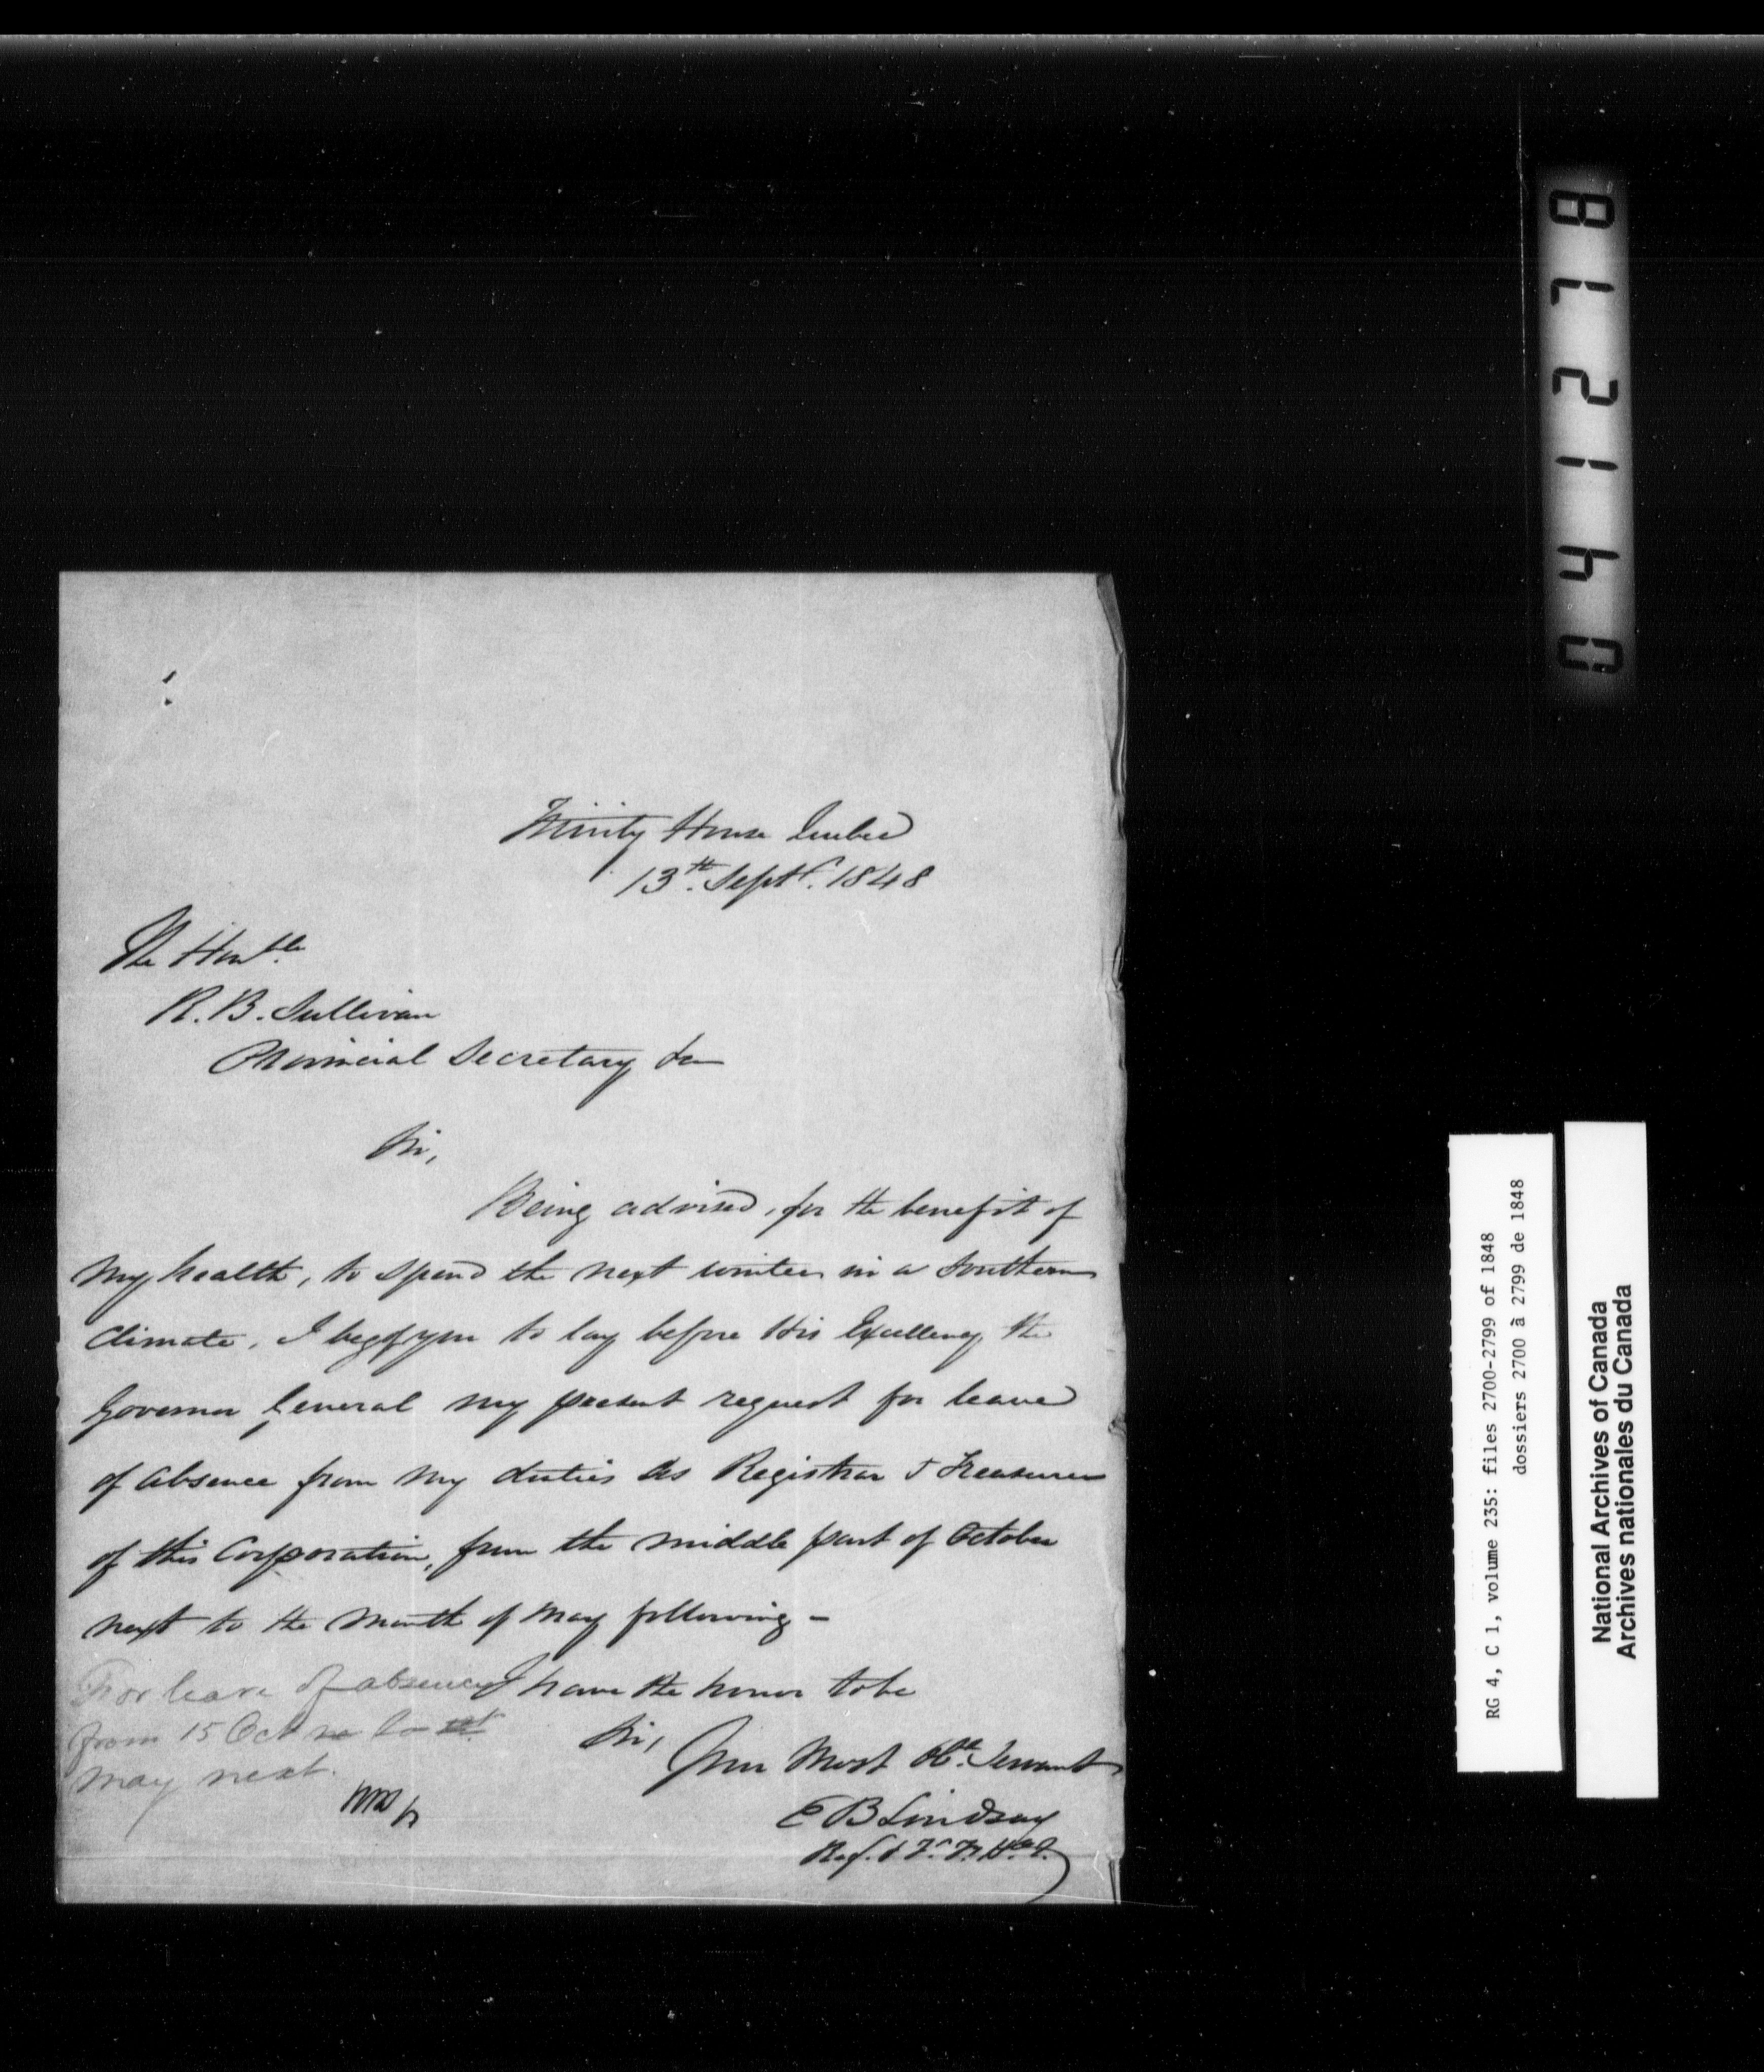 Trinity House Quebec
13th. Septr. 1848
The Honble
R. B. Sullivan
Provincial Secretary &c
Sir,
Being advised, for the benefit of
my health, to spend the next winter in a Southern
Climate, I beg of you to lay before His Excellency the
Governor General my present request for leave
of absence from my duties as Registrar & Treasurer
of this Corporation, from the middle part of October
next to the month of May following –
I have the honor to be
Sir,
Your Most Obt. Servant
E B Lindsay
Reg. & Tr. T. H. Q.
For leave of absence
from 15 Oct to
May next.
872140
RG 4, C 1, volume 235: files 2700-2799 of 1848
dossiers 2700 à 2799 de 1848
National Archives of Canada
Archives nationales du Canada